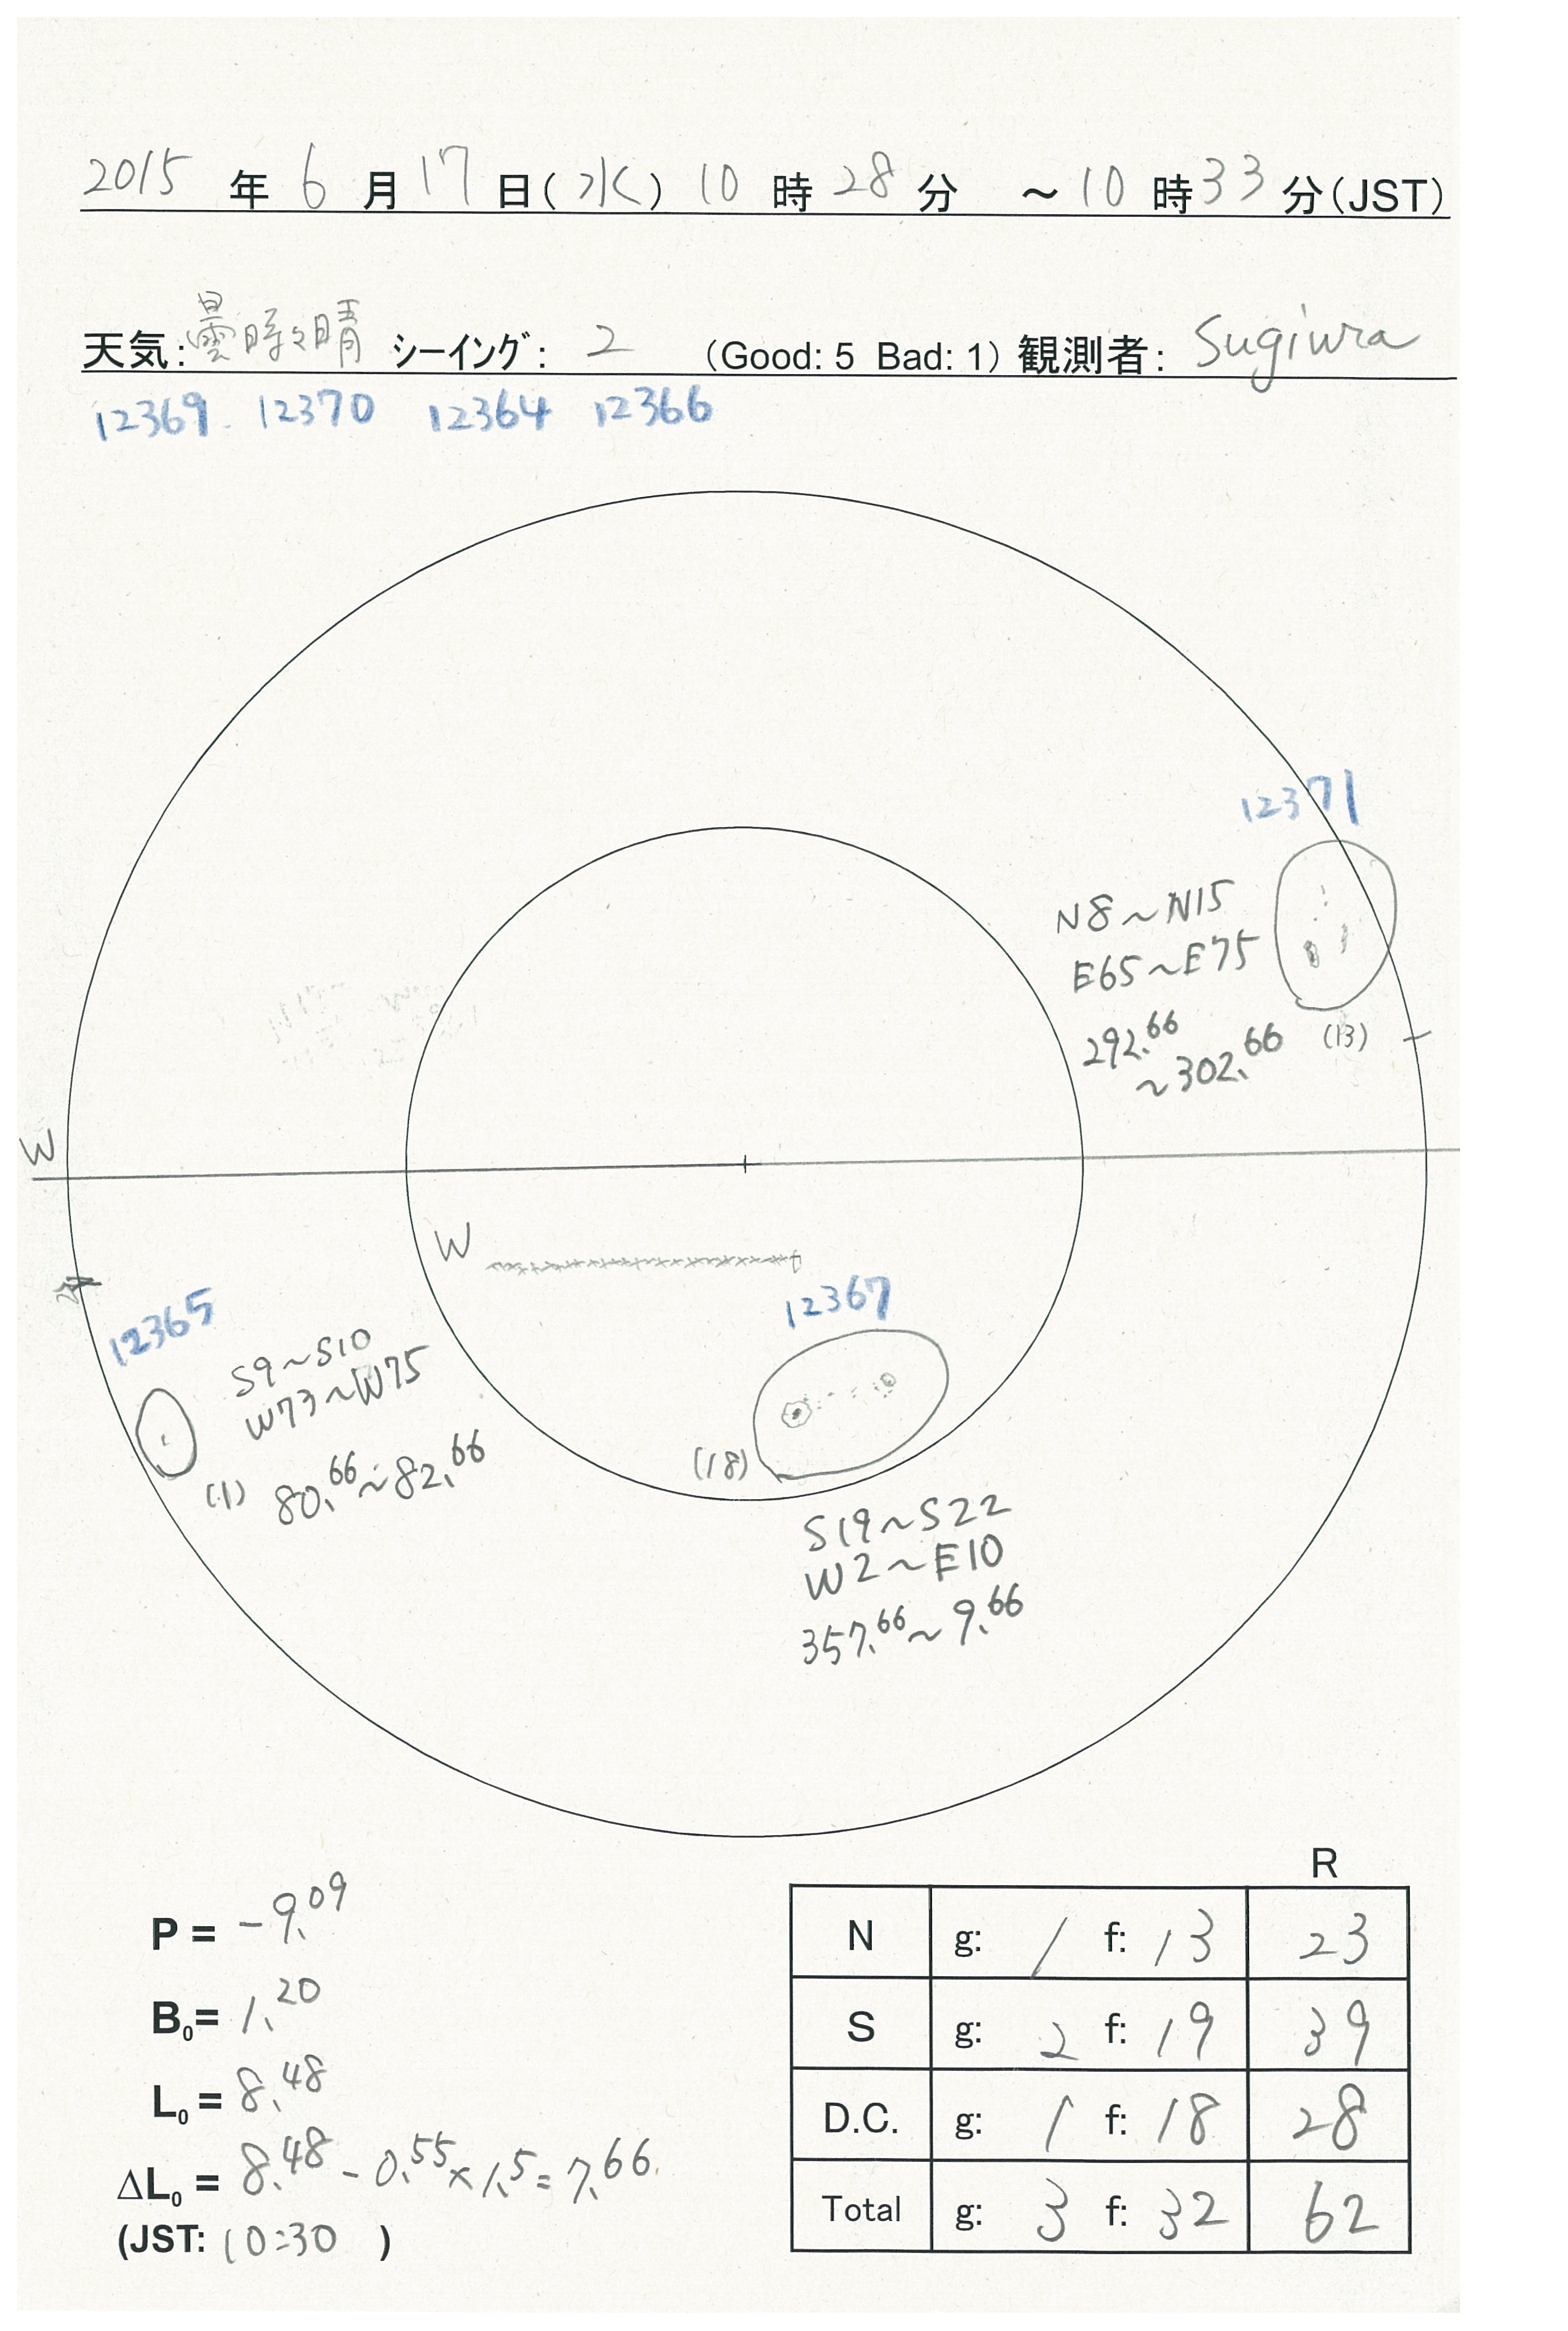 2015 年 6 月 17 日(水) 10 時 28 分 ～10 時 33 分(JST)
天気:曇時々晴 シーイング: 2 (Good: 5 Bad: 1) 観測者: Sugiura
12369 12370 12364 12366
12371
N8～N15
E65～E75
292.66
～302.66 (13)
W
W
12367
12365
S9～S10
W73～W75
(1) 80.66～82.66
(18)
S19～S22
W2～E10
357.66～9.66
P = -9.09
B0= 1.20
L0 = 8.48
ΔL0 = 8.48 - 0.55 × 1.5 = 7.66
(JST: 10:30 )
R
N g: 1 f: 13 23
S g: 2 f: 19 39
D.C. g: 1 f: 18 28
Total g: 3 f: 32 62